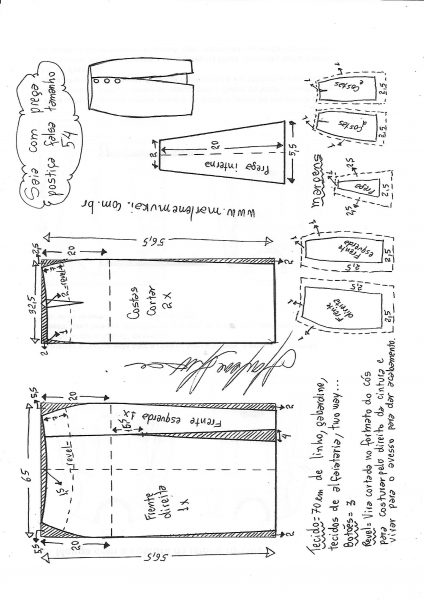 Saia com prega
postiça falsa tamanho
54
20
2
5,5
Prega interna
www.marlenemukai.com.br
margens
Costas
Costas
Prega
Frente
esquerda
Frente
direita
1
1
1
2,5
2,5
2,5
2,5
2,5
2,5
2,5
56,5
20
2,5
32,5
7
2
2
Costas
Cortar
2x
65
5,5
5,5
20
20
7
15
revel=
Frente esquerda 1x
Frente
direita
1x
2
4
2
56,5
Tecido= 70cm de linho, gabardine,
tecidos de alfaiataria, two way...
Botões= 3
Revel= Vira cortada no formato do cós
para costurar pelo direito da cintura e
virar para o avesso para dar acabamento.